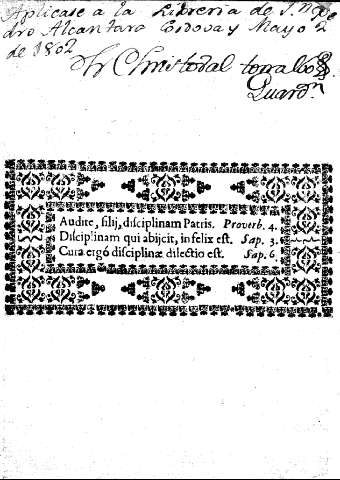 Aplicase a la Libreria de S.n Pe
dro Alcantara Cordova y Mayo 2
de 1802
Fr Christobal torralbo
Guard.n
Audite, filij, disciplinam Patris. Proverb. 4.
Disciplinam qui abijcit, infelix est. Sap. 3.
Cura ergó disciplinæ dilectio est. Sap. 6.